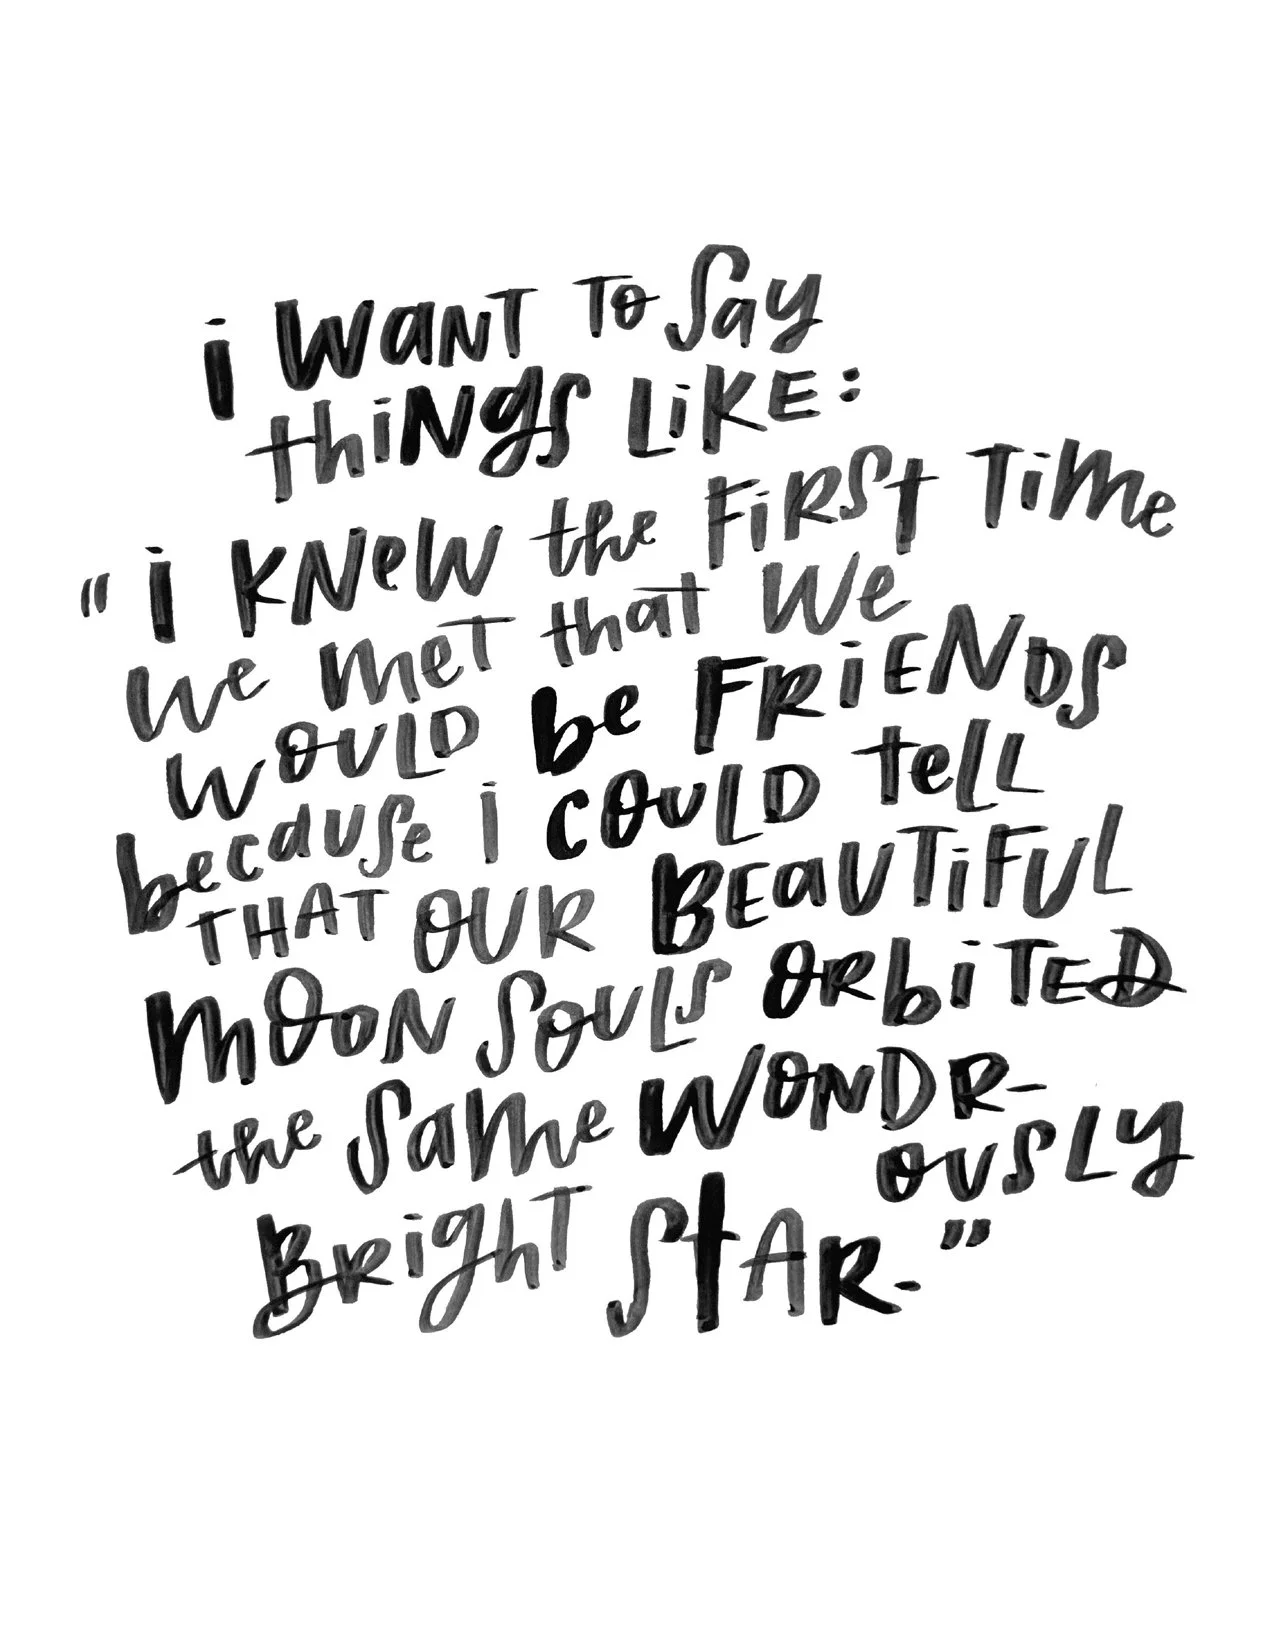 i WANT TO Say
thiNgs LiKE:
"i KNeW the FiRST TiMe
We meT that We
WOULD be FRiENDS
because i COULD tell
THAT OUR BEaUTiFUL
MOON SOULS ORbiTED
the SaMe WONDR-
OUSLY
BRighT STAR."